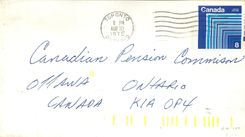 TORONTO
PM
Canada
8
Canadian Pension Commison
OTTAWA ONTARIO
CANADA K1A 0P4